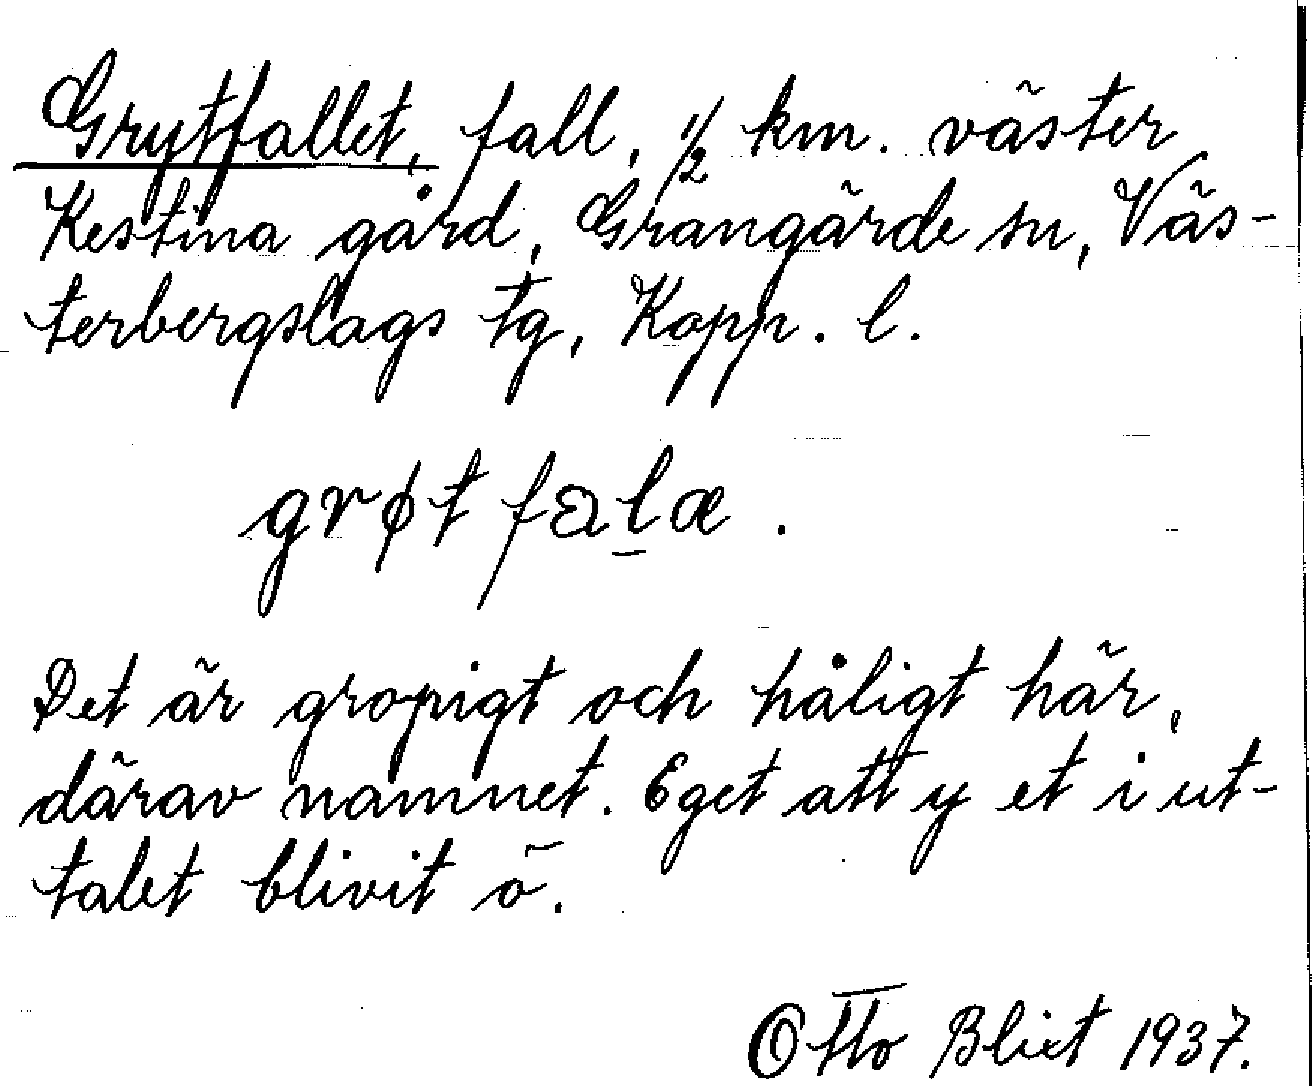 Grytfallet, fall, 1/2 km. väster
Kestina gård, Grangärde sn, Väs-
terbergslags tg, Kopp. l.
grøt falæ .
Det är gropigt och håligt här,
därav namnet. Eget att y et i ut-
talet blivit ö.
Otto Blixt 1937.